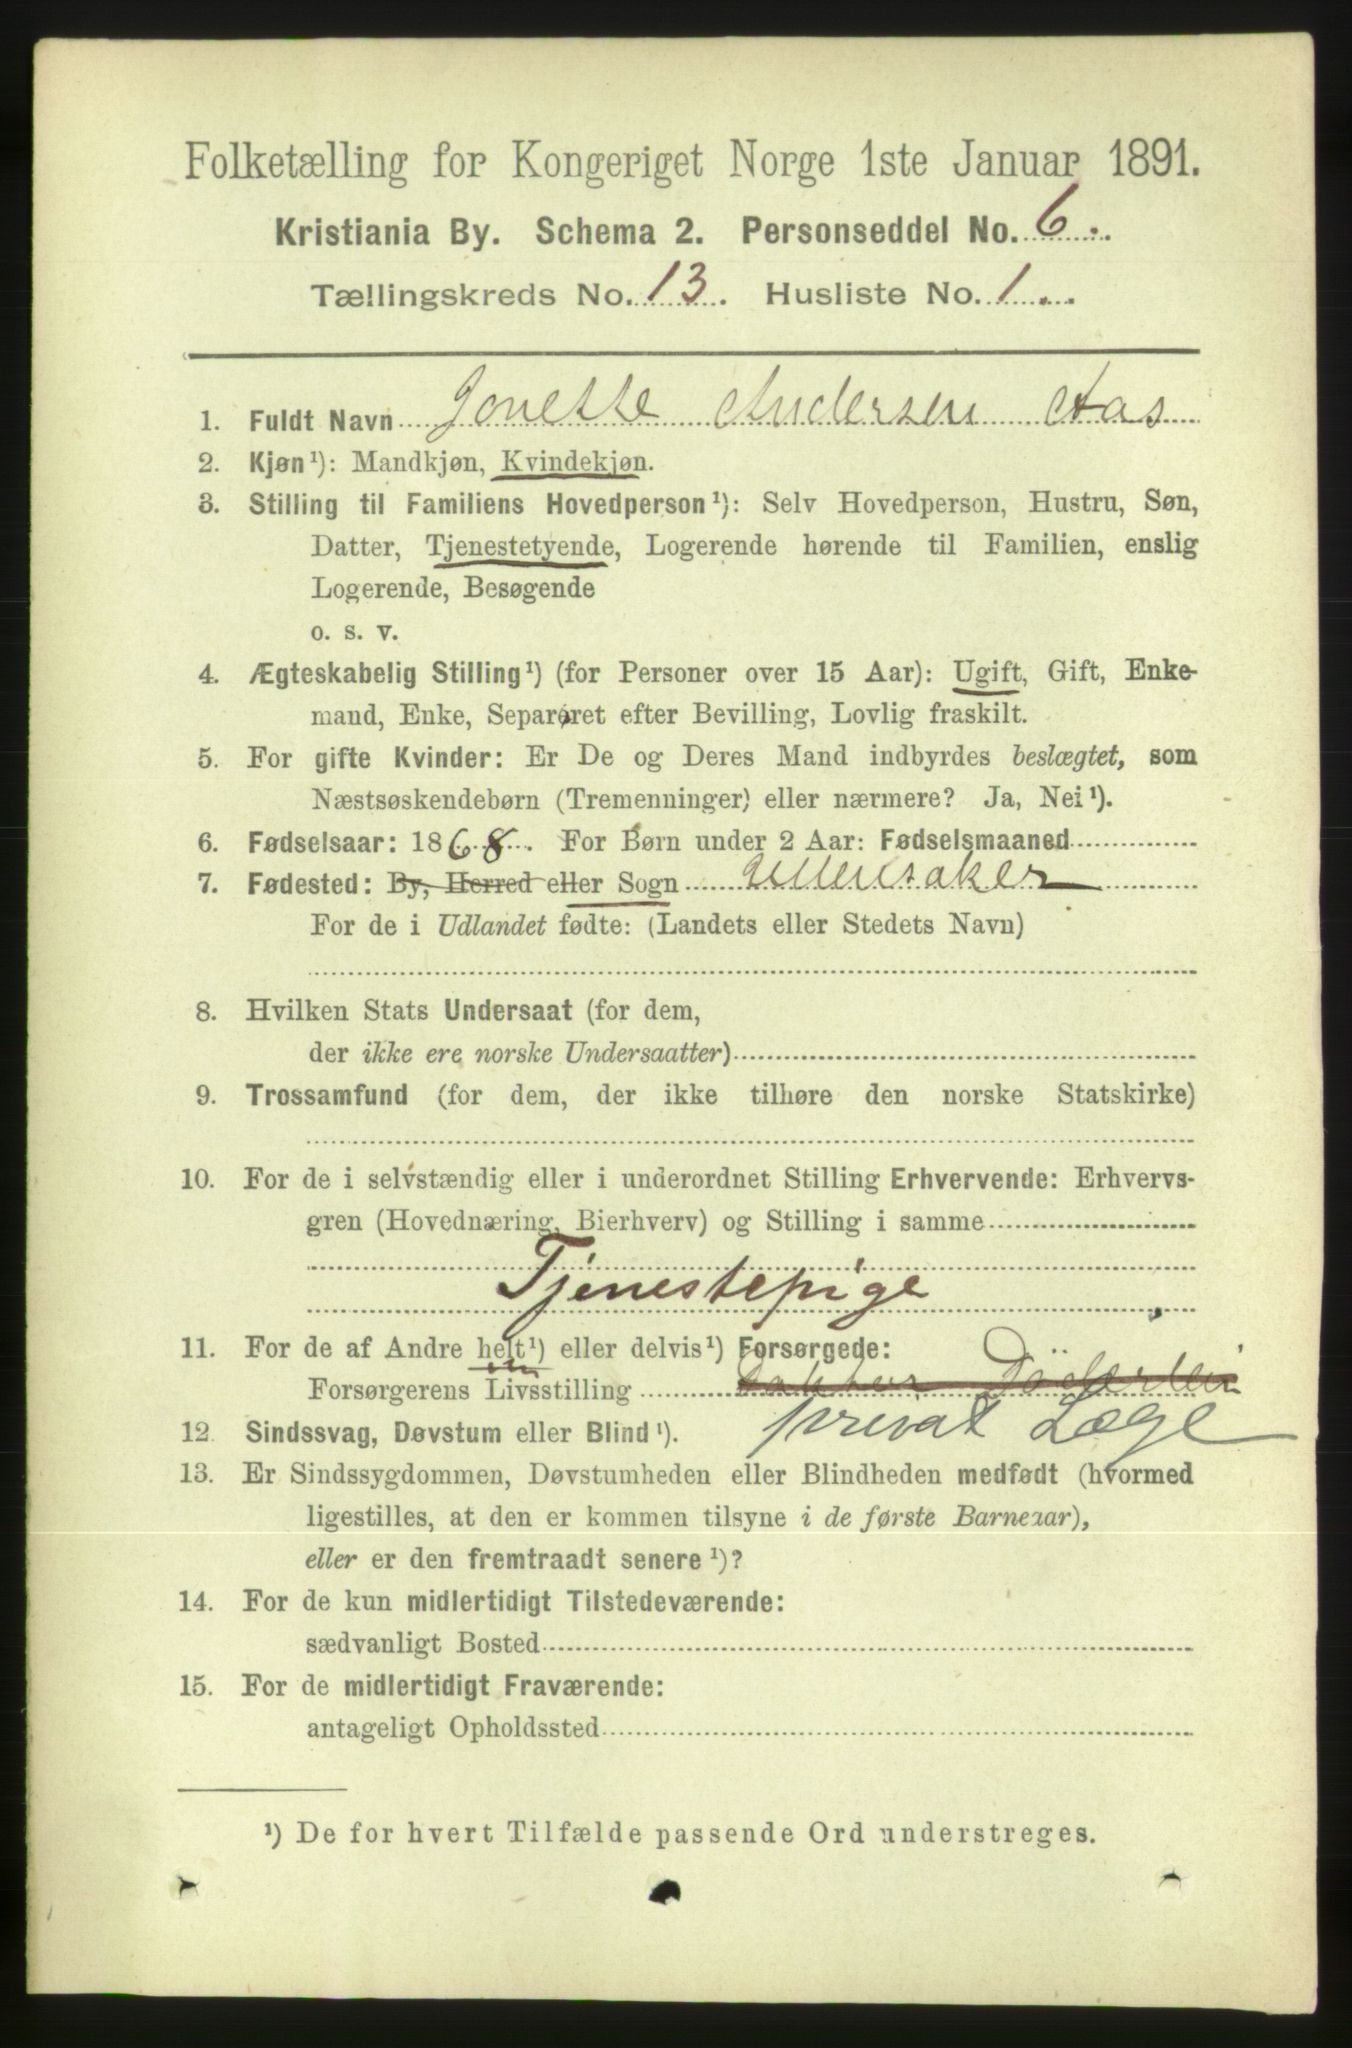 Folketælling for Kongeriget Norge 1ste Januar 1891.
Kristiania By. Schema 2. Personseddel No. 6.
Tællingskreds No. 13. Husliste No. 1.
1. Fuldt Navn Jonette Andersen Aas
2. Kjøn¹): Mandkjøn, Kvindekjøn.
3. Stilling til Familiens Hovedperson¹): Selv Hovedperson, Hustru, Søn,
Datter, Tjenestetyende, Logerende hørende til Familien, enslig
Logerende, Besøgende
o. s. v.
4. Ægteskabelig Stilling¹) (for Personer over 15 Aar): Ugift, Gift, Enke-
mand, Enke, Separeret efter Bevilling, Lovlig fraskilt.
5. For gifte Kvinder: Er De og Deres Mand indbyrdes beslægtet, som
Næstsøskendebørn (Tremenninger) eller nærmere? Ja, Nei¹).
6. Fødselsaar: 1868. For Børn under 2 Aar: Fødselsmaaned
7. Fødested: By, Herred eller Sogn Ullensaker
For de i Udlandet fødte: (Landets eller Stedets Navn)
8. Hvilken Stats Undersaat (for dem,
der ikke ere norske Undersaatter)
9. Trossamfund (for dem, der ikke tilhøre den norske Statskirke)
10. For de i selvstændig eller i underordnet Stilling Erhvervende: Erhvervs-
gren (Hovednæring, Bierhverv) og Stilling i samme
Tjenestepige
11. For de af Andre helt¹) eller delvis¹) Forsørgede:
Forsørgerens Livsstilling Doktor Döderlein
privat Læge
12. Sindssvag, Døvstum eller Blind¹).
13. Er Sindssygdommen, Døvstumheden eller Blindheden medfødt (hvormed
ligestilles, at den er kommen tilsyne i de første Barneaar),
eller er den fremtraadt senere¹)?
14. For de kun midlertidigt Tilstedeværende:
sædvanligt Bosted
15. For de midlertidigt Fraværende:
antageligt Opholdssted
¹) De for hvert Tilfælde passende Ord understreges.